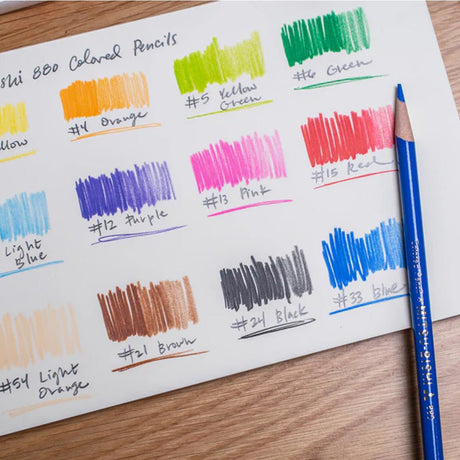 shi 880 Colored Pencils
ellow
#4 Orange
#5 Yellow
Green
#6 Green
Light
Blue
#12 Purple
#13 Pink
#15 Red
#54 Light
Orange
#21 Brown
#24 Black
#33 Blue
MITSU-BISHI